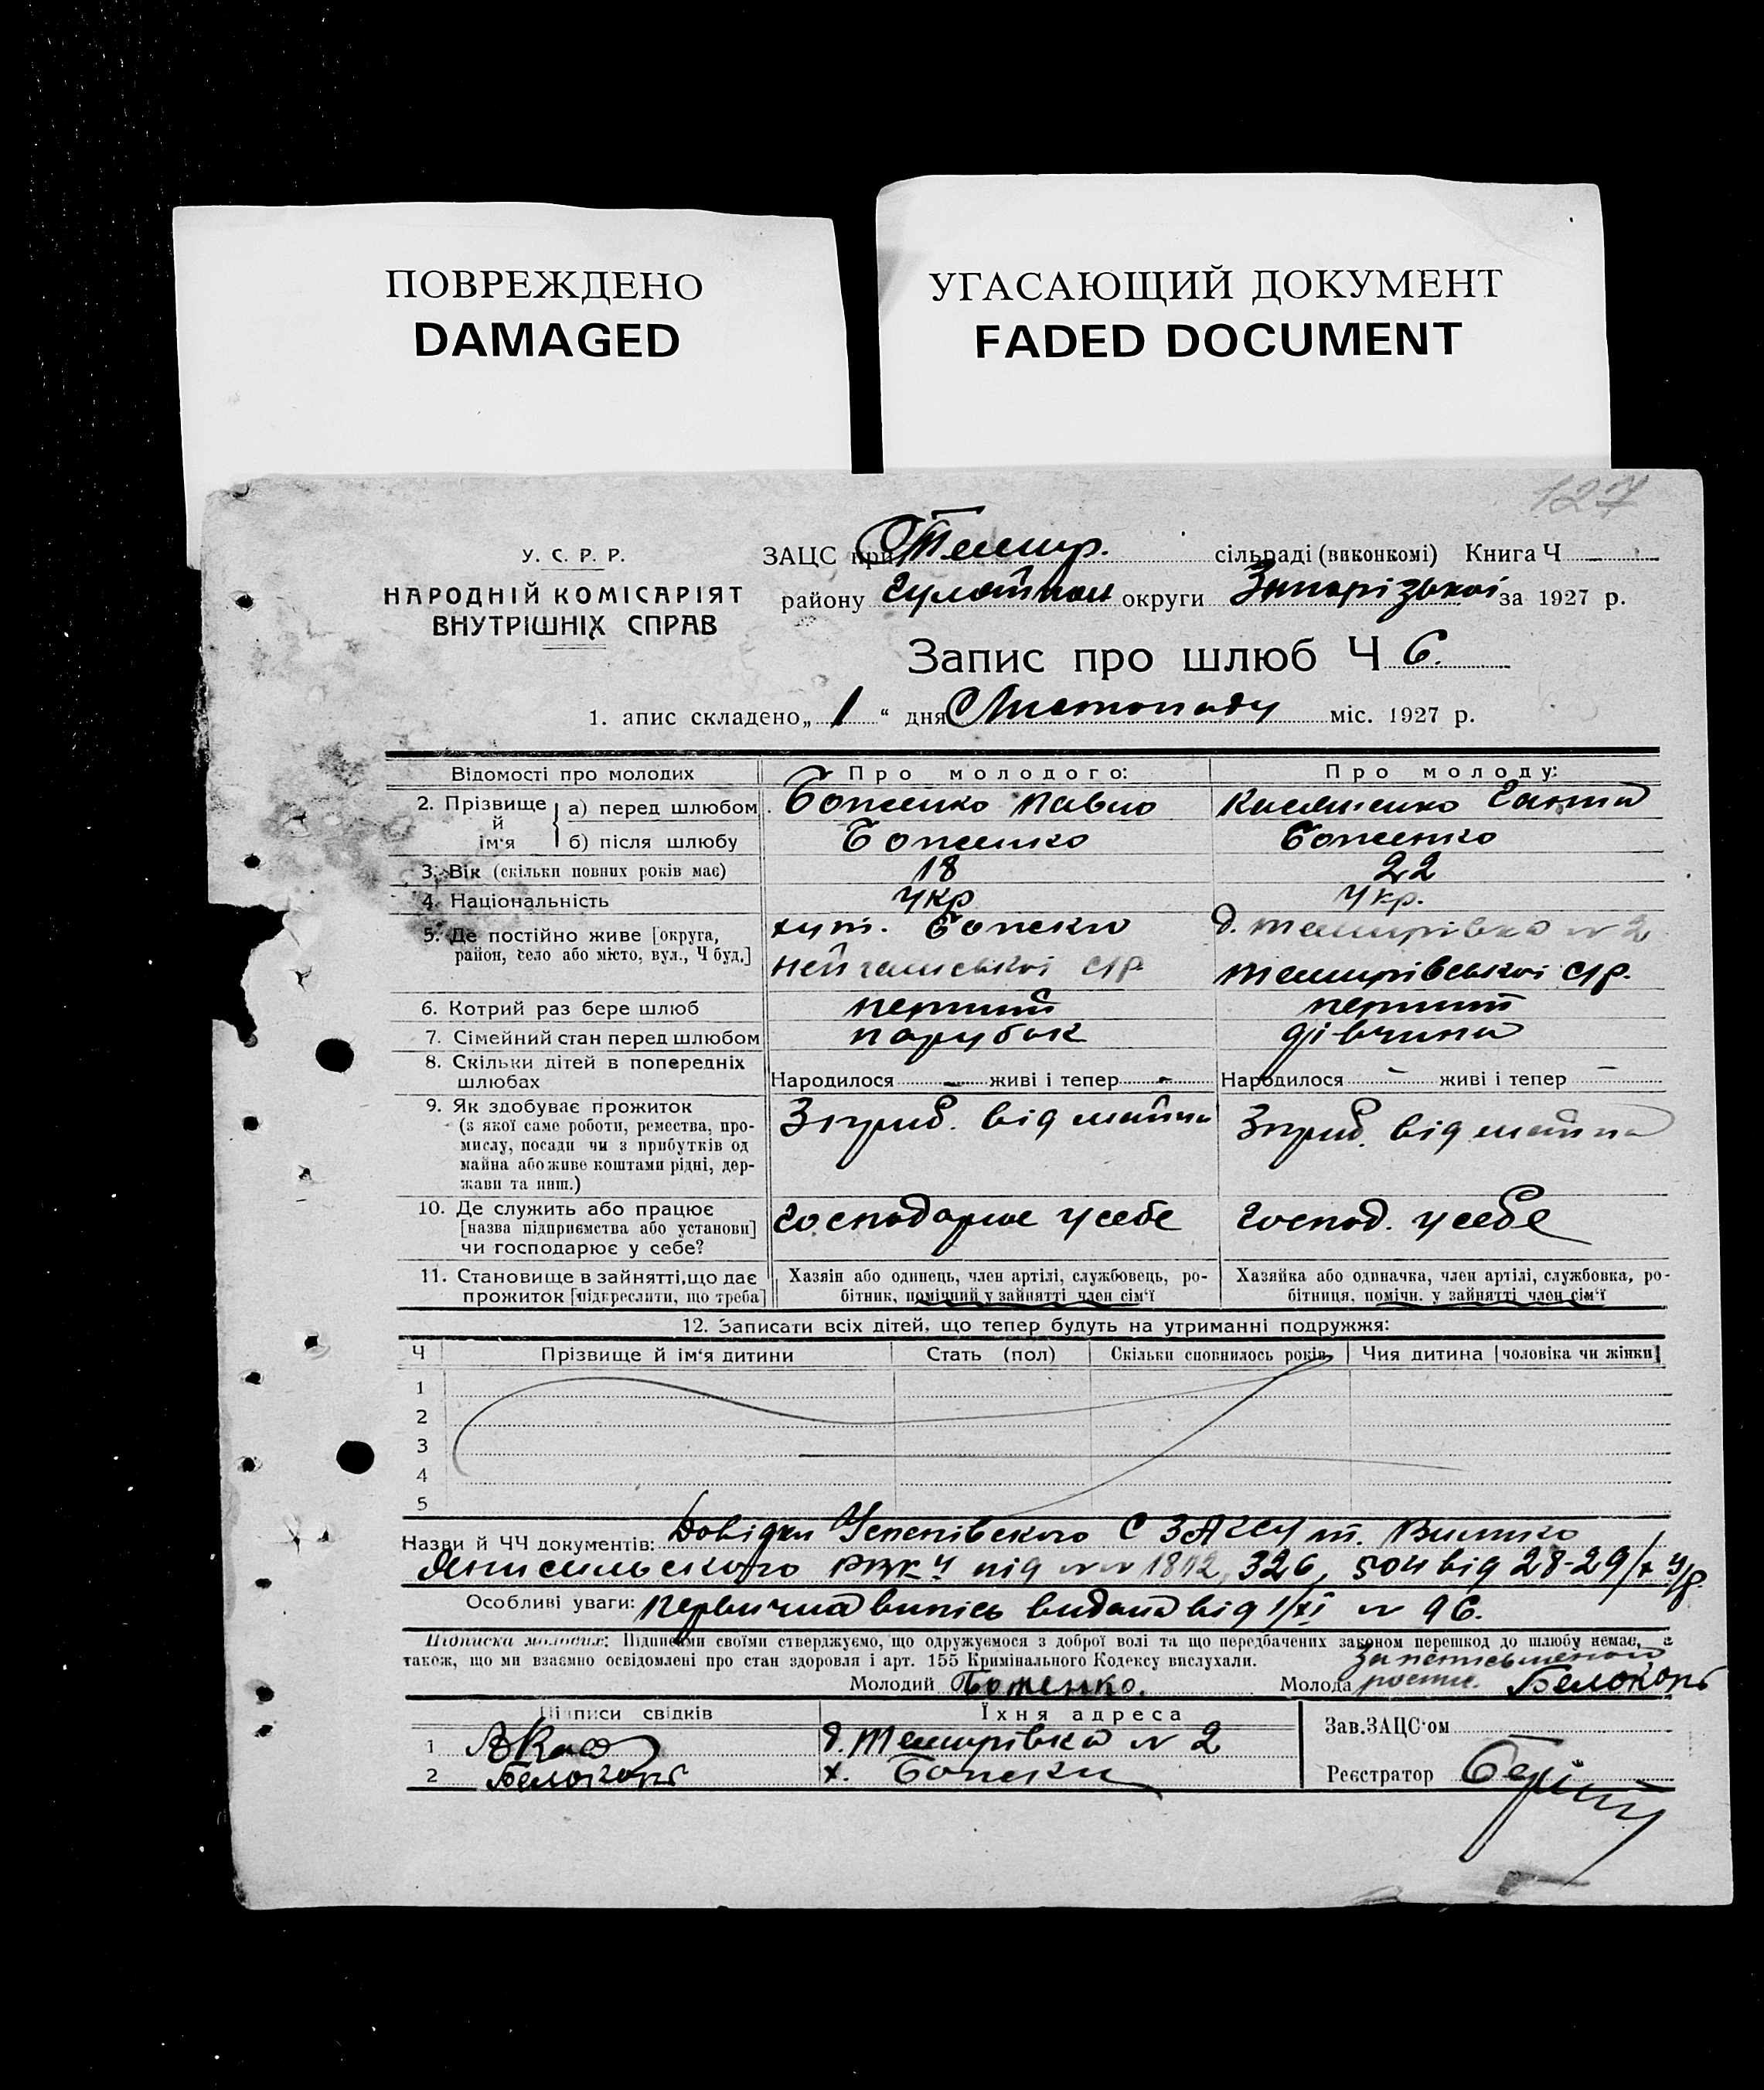 ПОВРЕЖДЕНО
DAMAGED
УГАСАЮЩИЙ ДОКУМЕНТ
FADED DOCUMENT
127
У. С. Р. Р.
НАРОДНІЙ КОМІСАРІЯТ
ВНУТРІШНІХ СПРАВ
ЗАЦС при Темир. сільраді (виконкомі) Книга Ч
району Гуляйпол округи Запорізької за 1927 р.
Запис про шлюб Ч 6.
1. апис складено „ 1 “ дня Листопаду міс. 1927 р.
Відомості про молодих Про молодого: Про молоду:
2. Прізвище й ім'я а) перед шлюбом Боженко Павло Касяненко Ганна
б) після шлюбу Боженко Боженко
3. Вік (скільки повних років має) 18 22
4. Національність Укр Укр.
5. Де постійно живе [округа, хут. д. Темирівка № 2
район, село або місто, вул., Ч буд.] с/р. Темирівської с/р.
6. Котрий раз бере шлюб перший перший
7. Сімейний стан перед шлюбом парубок дівчина
8. Скільки дітей в попередніх
шлюбах Народилося - живі і тепер - Народилося - живі і тепер -
9. Як здобуває прожиток З приб. від майна З приб. від майна
(з якої саме роботи, ремества, про-
мислу, посади чи з прибутків од
майна або живе коштами рідні, дер-
жави та инш.)
10. Де служить або працює господарює у себе господ. у себе
[назва підприємства або установи]
чи господарює у себе?
11. Становище в зайнятті, що дає Хазяїн або одинець, член артілі, службовець, ро- Хазяйка або одиначка, член артілі, службовка, ро-
прожиток [підкреслити, що треба] бітник, помічний у зайнятті член сім'ї бітниця, помічн. у зайнятті член сім'ї
12. Записати всіх дітей, що тепер будуть на утриманні подружжя:
Ч Прізвище й ім'я дитини Стать (пол) Скільки сповнилось років Чия дитина [чоловіка чи жінки]
1
2
3
4
5
Назви й ЧЧ документів: Довідки Успенівского С ЗАГСУ
під №№ 1812, 326, 504 від 28-29/X ц/р.
Особливі уваги: Первична випись видана від 1/XI № 96.
Підписка молодих: Підписами своїми стверджуємо, що одружуємося з доброї волі та що передбачених законом перешкод до шлюбу немає, а
також, що ми взаємно освідомлені про стан здоровля і арт. 155 Кримінального Кодексу вислухали.
За неписьменного
Молодий Боженко. Молода роспис. Белоконь
Підписи свідків Їхня адреса Зав. ЗАЦС'ом
1 д. Темирівка № 2
2 Белоконь х. Реєстратор